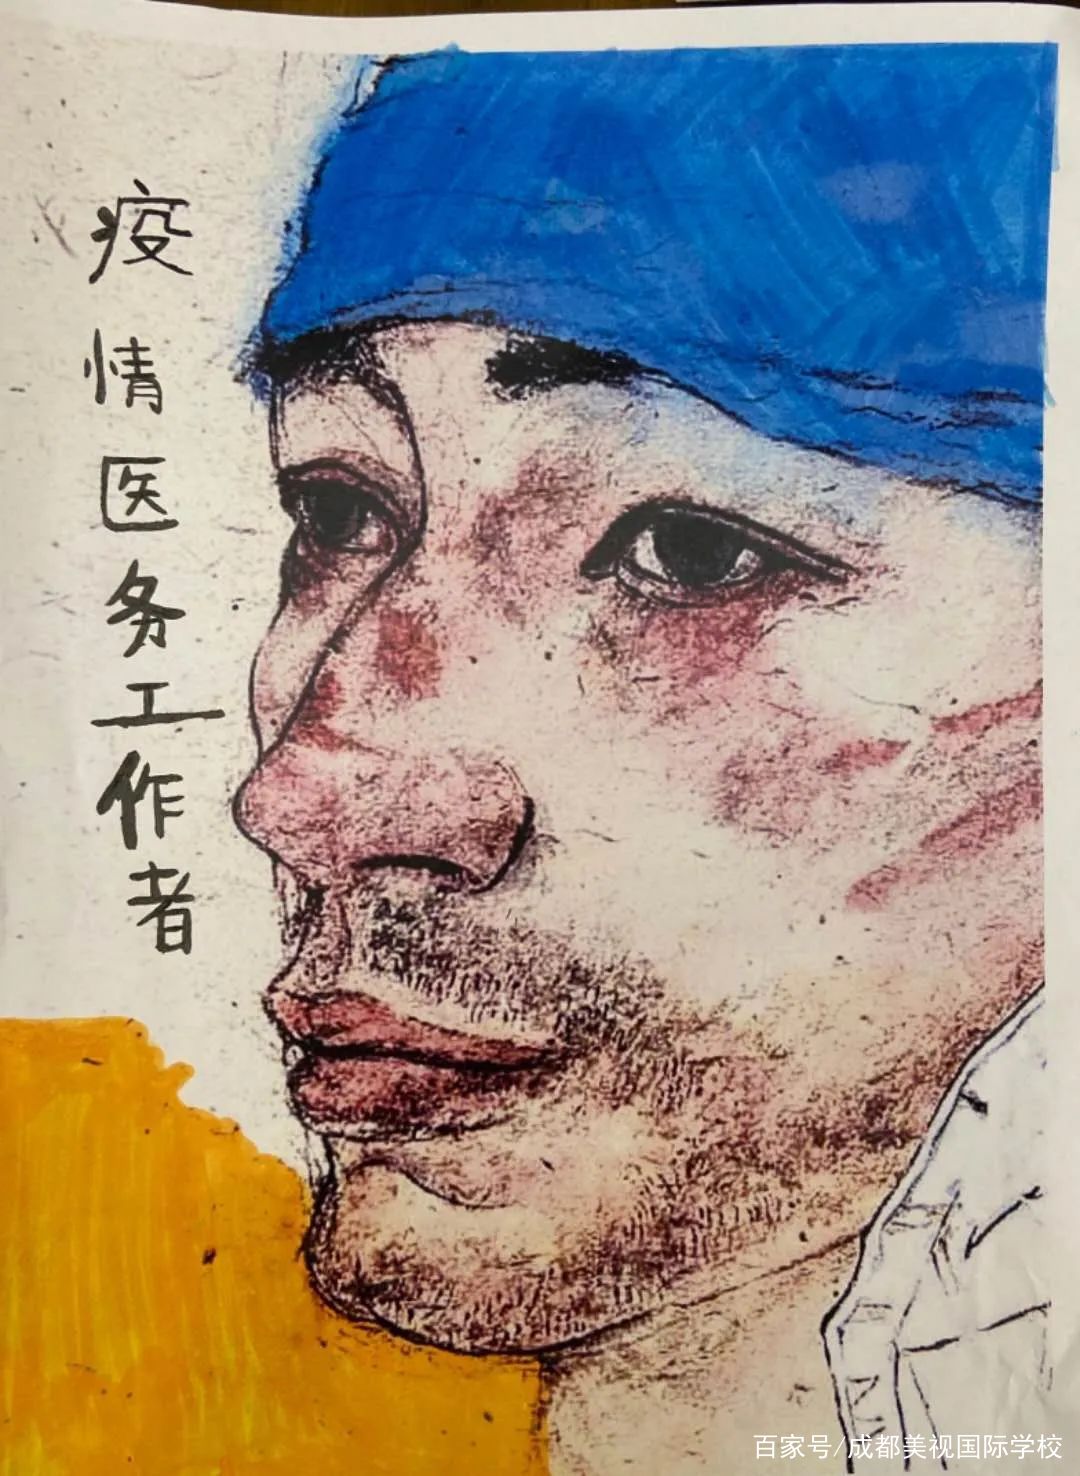 疫情医务工作者
百家号/成都美视国际学校